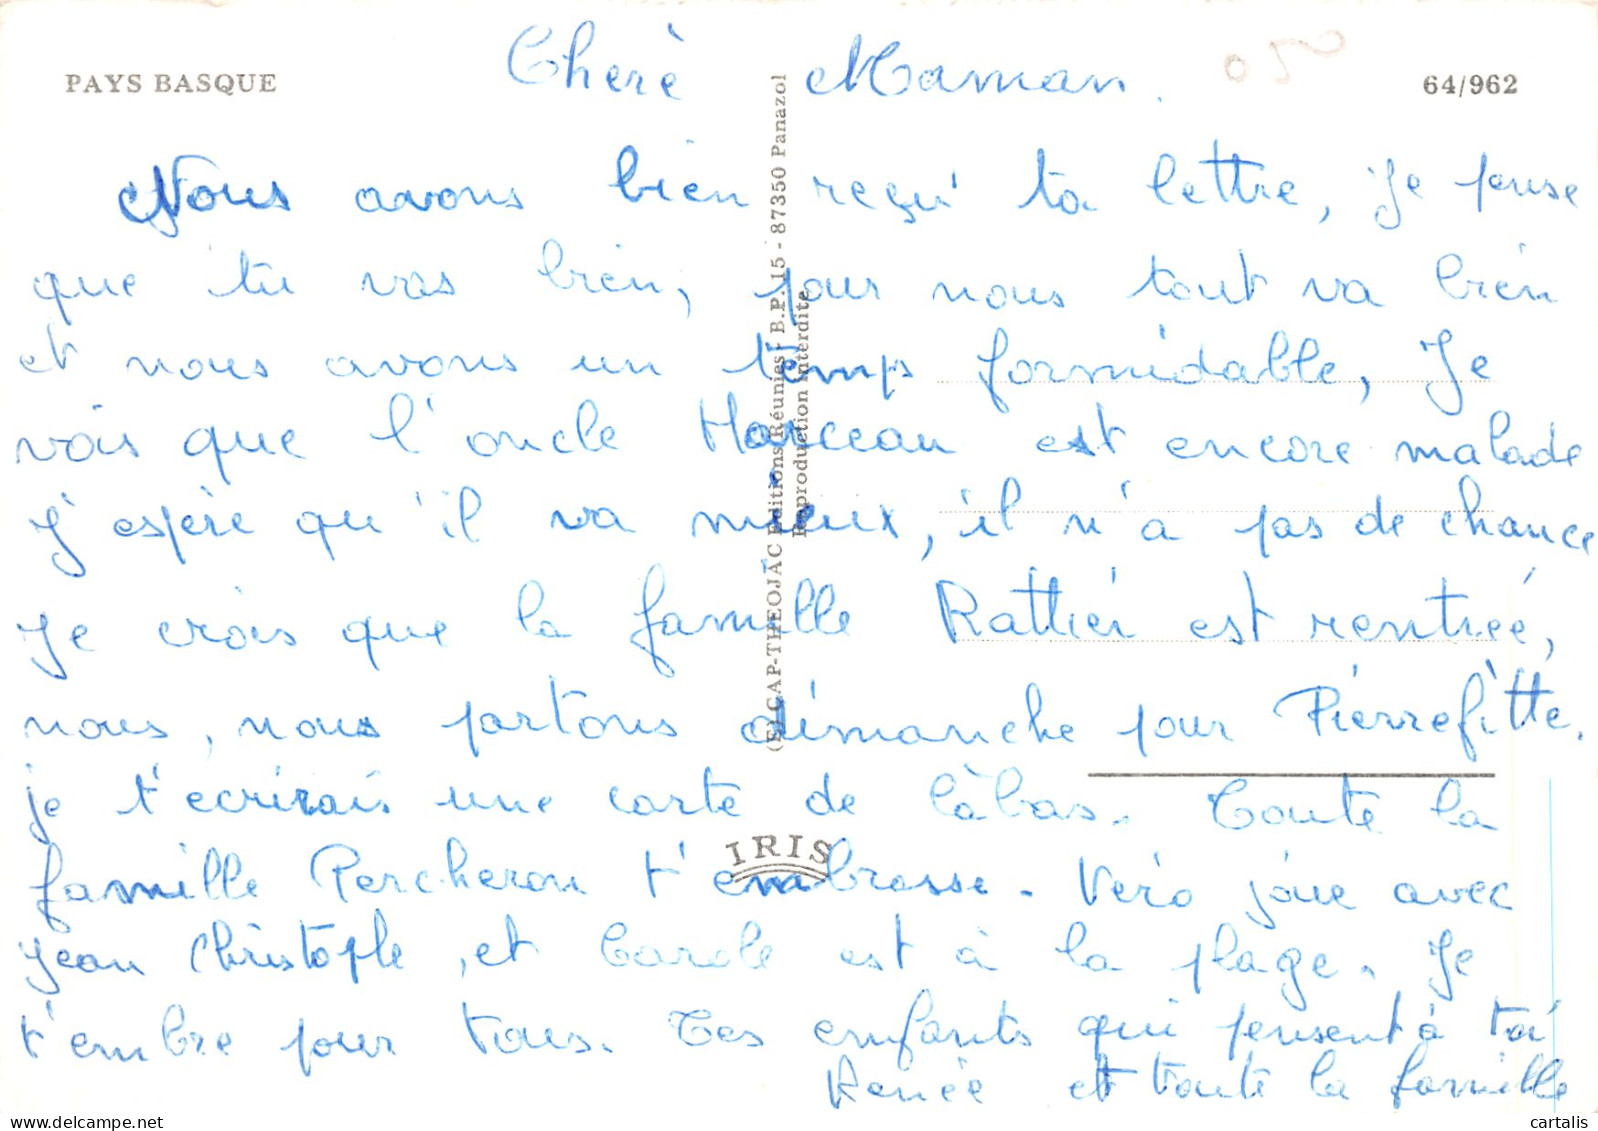 Cherè Maman.
PAYS BASQUE
64/962
Nous avons bien reçu ta lettre, Je pense
que tu vas bien, pour nous tout va bien
et nous avons un temps formidable, Je
vois que l'oncle Marceau est encore malade
J'espère qu'il va mieux, il n'a pas de chance
Je crois que la famille Rattier est rentrée,
nous, nous partons dimanche pour Pierrefitte.
je t'ecrirais une carte de làbas. Toute la
famille Percheron t'embrasse. Véro joue avec
Jean Christophe, et Carole est à la plage. Je
t'embre pour tous. Tes enfants qui pensent à toi
Renée et toute la famille
(E) CAP-THEOJAC Editions Réunies - B.P. 15 - 87350 Panazol
Reproduction Interdite
IRIS
cartalis
delcampe.net